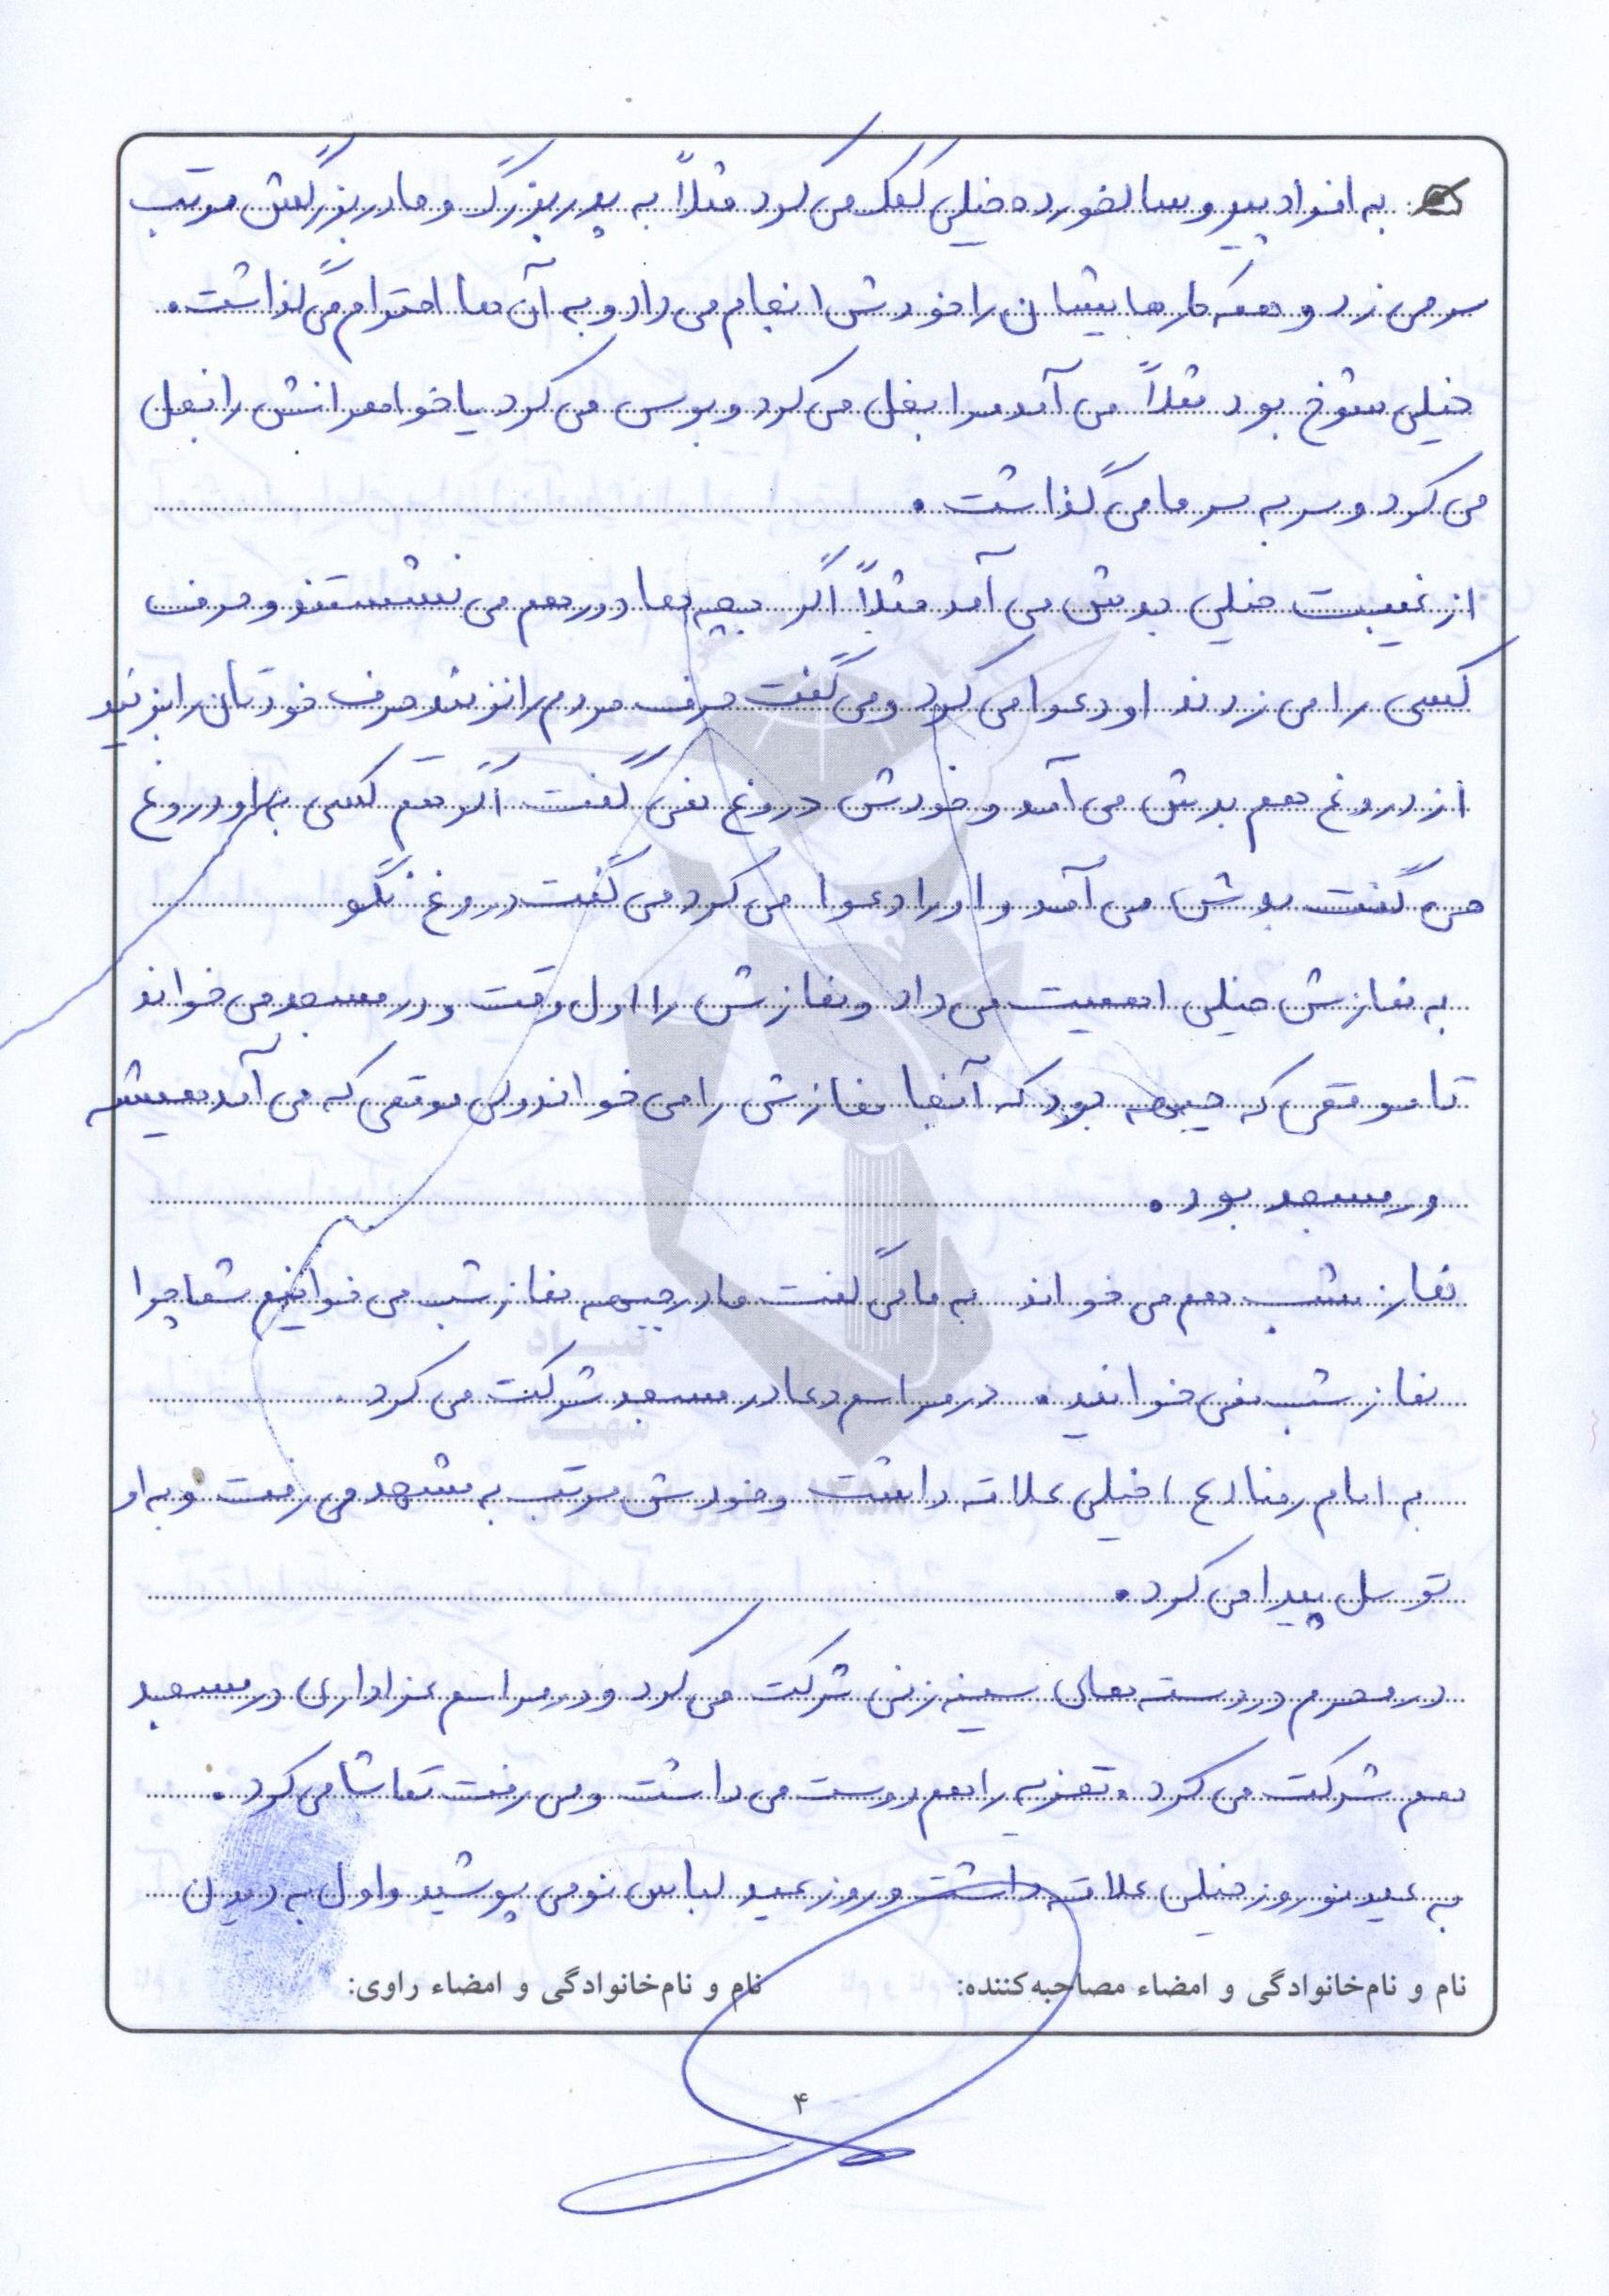 به افراد پیر و سالخورده خیلی کمک می کرد مثلاً به پدربزرگ و مادربزرگش مرتب
سر می زد و همه کارهایشان را خودش انجام می داد و به آن ها احترام می گذاشت.
خیلی شوخ بود مثلاً می آمد مرا بغل می کرد و بوس می کرد یا خواهرانش را بغل
می کرد و سر به سر ما می گذاشت.
از غیبت خیلی بدش می آمد مثلاً اگر بچه ها دور هم می نشستند و حرف
کسی را می زدند او دعوا می کرد و می گفت حرف مردم را نزنید حرف خودتان را بزنید
از دروغ هم بدش می آمد و خودش دروغ نمی گفت اگر هم کسی به او دروغ
می گفت بدش می آمد و او را دعوا می کرد می گفت دروغ نگو
به نمازش خیلی اهمیت می داد و نمازش را اول وقت و در مسجد می خواند
تا موقعی که جبهه بود که آنجا نمازش را می خواند ولی موقعی که می آمد همیشه
در مسجد بود.
نماز شب هم می خواند به ما می گفت ما در جبهه نماز شب می خوانیم شما چرا
نماز شب نمی خوانید. در مراسم دعا در مسجد شرکت می کرد.
به امام رضا (ع) خیلی علاقه داشت و خودش مرتب به مشهد می رفت و به او
توسل پیدا می کرد.
در محرم در دسته های سینه زنی شرکت می کرد و در مراسم عزاداری در مسجد
هم شرکت می کرد. تعزیه را هم دوست می داشت و می رفت تماشا می کرد.
به عید نوروز خیلی علاقه داشت و روز عید لباس نو می پوشید و اول به دیدن
نام و نام‌خانوادگی و امضاء مصاحبه‌کننده: نام و نام‌خانوادگی و امضاء راوی:
۴
بنیاد
شهید